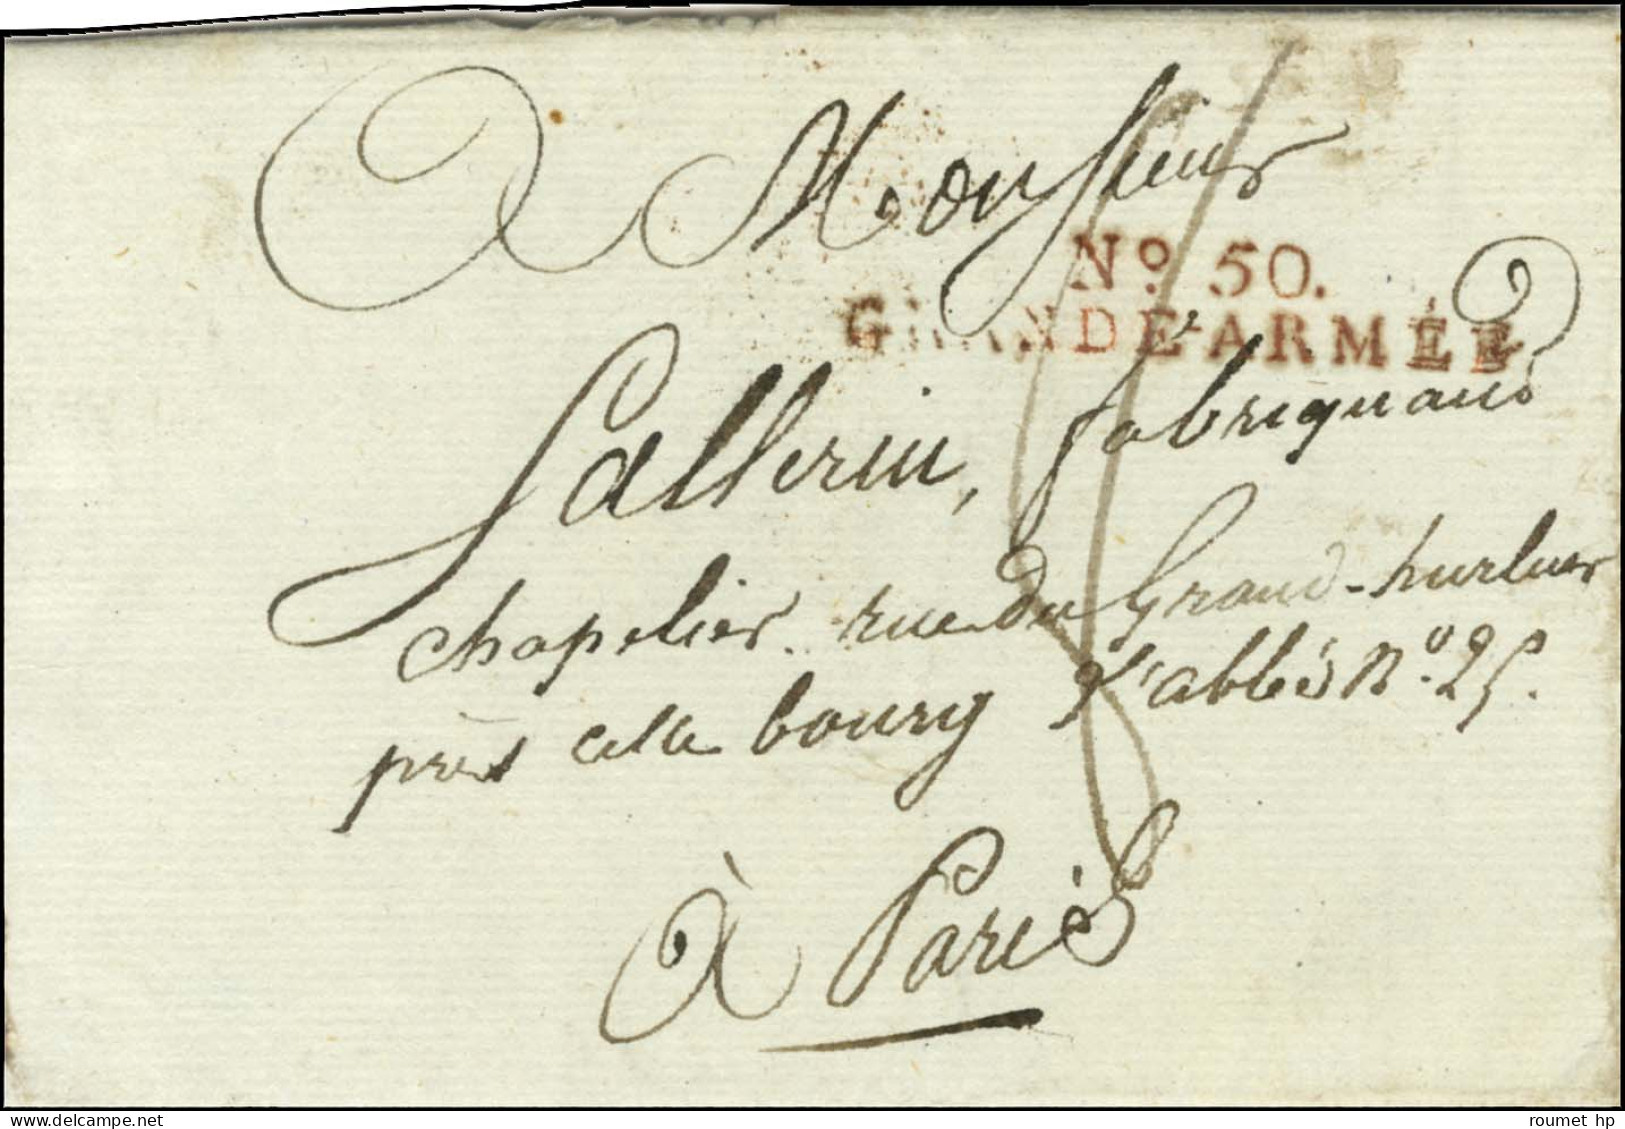 A Monsieur
No. 50.
GRANDE-ARMÉE
Sallerin, fabriquant
chapelier. rue du Grand-hurleur
près celle bourg l'abbé No. 25.
à Paris
roumet hp